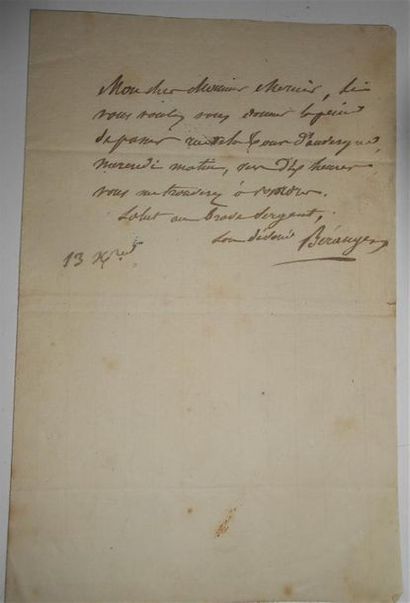 Mon cher Monsieur Mercier, si
vous voulez vous donner la peine
de passer rue de la Tour d'auvergne,
mercredi matin, vers dix heures
vous me trouverez à
Salut au Brave Sergent,
Son dévoué Béranger
13 Xbre